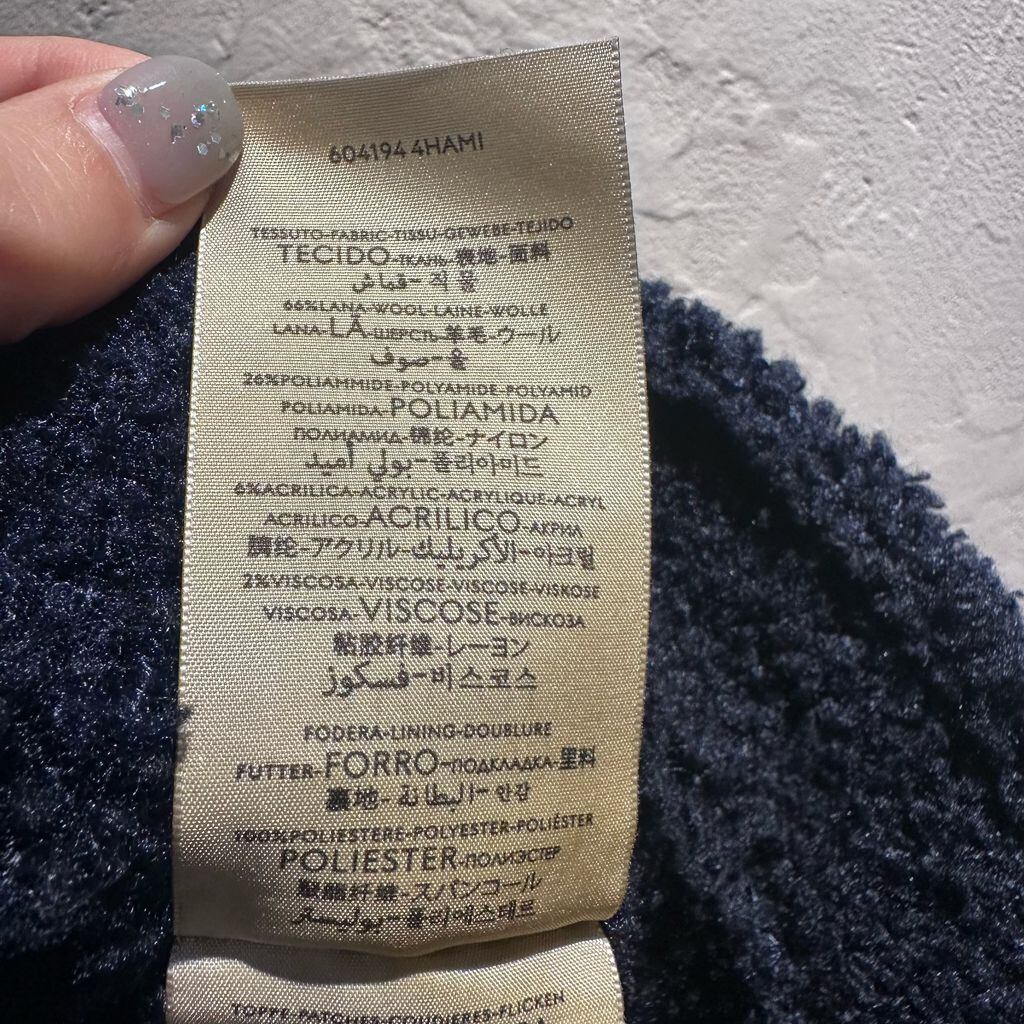 604194 4HAMI
TESSUTO-FABRIC-TISSU-GEWEBE-TEJIDO
TECIDO-ТКАНЬ-表地-面料
قماش-직물
66%LANA-WOOL-LAINE-WOLLE
LANA-LÃ-ШЕРСТЬ-羊毛-ウール
صوف-울
26%POLIAMMIDE-POLYAMIDE-POLYAMID
POLIAMIDA-POLIAMIDA
ПОЛИАМИД-锦纶-ナイロン
بولي أميد-폴리아미드
6%ACRILICA-ACRYLIC-ACRYLIQUE-ACRYL
ACRILICO-ACRILICO-АКРИЛ
腈纶-アクリル-الأكريليك-아크릴
2%VISCOSA-VISCOSE-VISCOSE-VISKOSE
VISCOSA-VISCOSE-ВИСКОЗА
粘胶纤维-レーヨン
فسكوز-비스코스
FODERA-LINING-DOUBLURE
FUTTER-FORRO-ПОДКЛАДКА-里料
裏地-البطانة-안감
100%POLIESTERE-POLYESTER-POLIÉSTER
POLIESTER-ПОЛИЭСТЕР
聚酯纤维-スパンコール
بوليستر-폴리에스테르
TOPPE-PATCHES-COUDIERES-FLICKEN